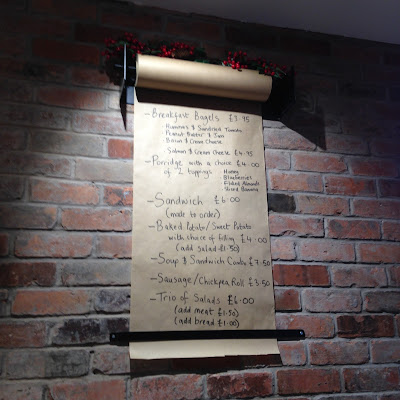 - Breakfast Bagels £3.95
Hummus & Sundried Tomato
Peanut Butter & Jam
Bacon & Cream Cheese
Salmon & Cream Cheese £4.95
- Porridge with a choice £4.00
of 2 toppings Honey
Blueberries
Flaked Almonds
Sliced Banana
- Sandwich £6.00
(made to order)
- Baked Potato/Sweet Potato
with choice of filling £4.00
(add salad £1.50)
- Soup & Sandwich Combo £7.50
- Sausage/Chickpea Roll £3.50
- Trio of Salads £6.00
(add meat £1.50)
(add bread £1.00)